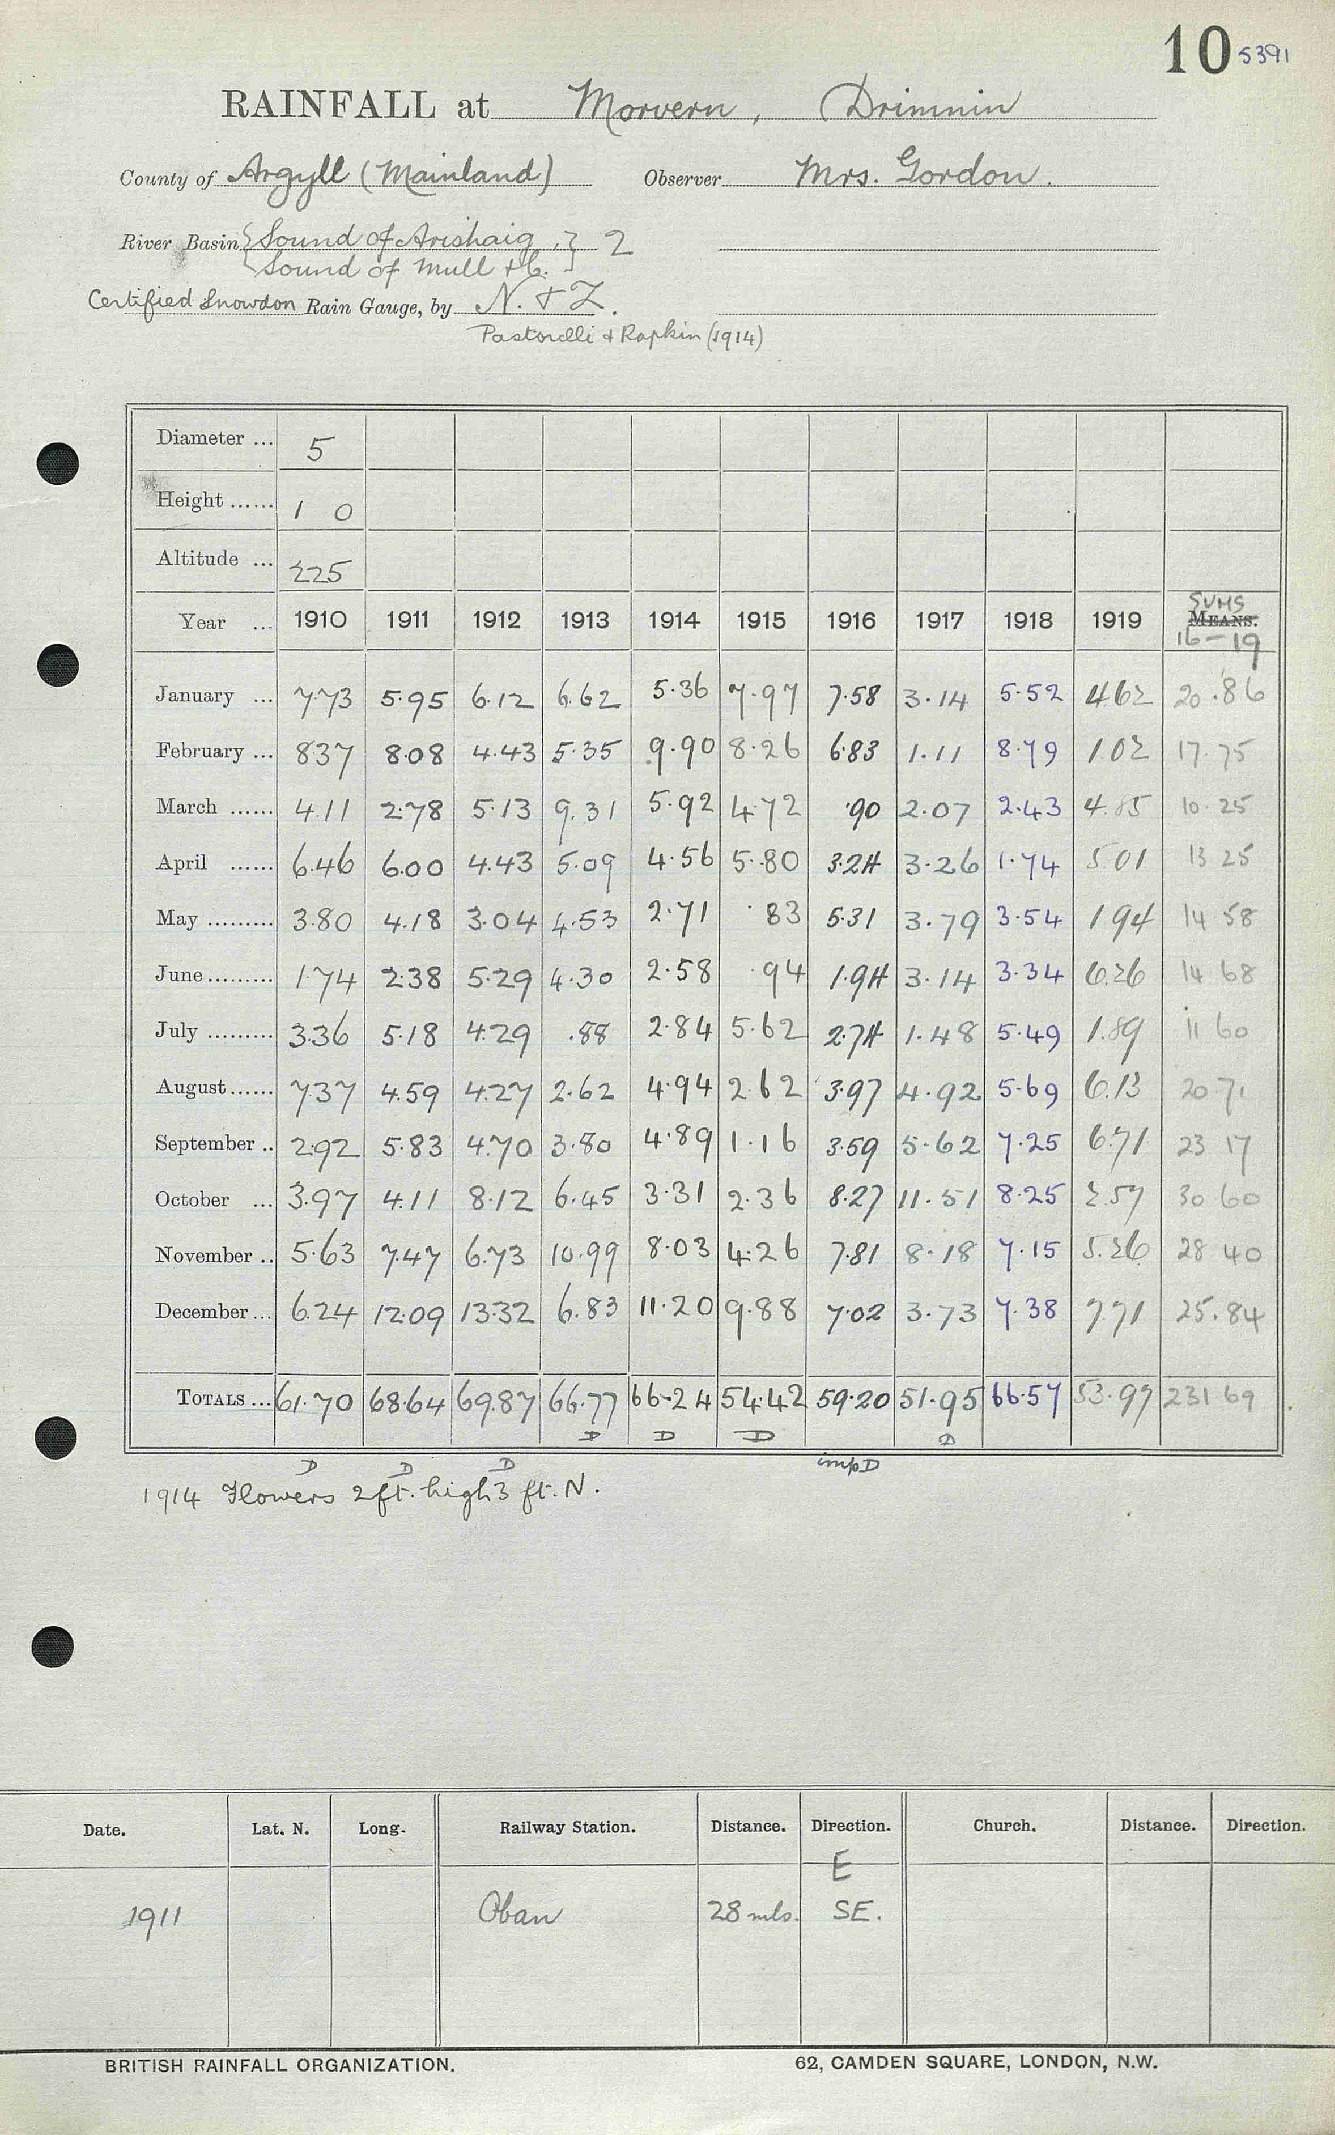 10 5391
RAINFALL at Morvern, Drimnin
County of Argyll (Mainland) Observer Mrs. Gordon.
River Basin {Sound of Arishaig,} 2
{Sound of Mull &c.}
Certified Snowdon Rain Gauge, by N. & Z.
Pastorelli & Rapkin (1914)
Diameter ... 5
Height ...... 1 0
Altitude ... 225
SUMS
Year ... 1910 1911 1912 1913 1914 1915 1916 1917 1918 1919 MEANS.
16-19
January ... 7.73 5.95 6.12 6.62 5.36 7.97 7.58 3.14 5.52 4.62 20.86
February ... 8.37 8.08 4.43 5.35 9.90 8.26 6.83 1.11 8.79 1.02 17.75
March ...... 4.11 2.78 5.13 9.31 5.92 4.72 .90 2.07 2.43 4.85 10.25
April ...... 6.46 6.00 4.43 5.09 4.56 5.80 3.24 3.26 1.74 5.01 13 25
May ......... 3.80 4.18 3.04 4.53 2.71 .83 5.31 3.79 3.54 1.94 14 58
June ......... 1.74 2.38 5.29 4.30 2.58 .94 1.94 3.14 3.34 6.26 14 68
July ......... 3.36 5.18 4.29 .88 2.84 5.62 2.74 1.48 5.49 1.89 11 60
August ...... 7.37 4.59 4.27 2.62 4.94 2.62 3.97 4.92 5.69 6.13 20 71
September .. 2.92 5.83 4.70 3.80 4.89 1.16 3.59 5.62 7.25 6.71 23 17
October ... 3.97 4.11 8.12 6.45 3.31 2.36 8.27 11.51 8.25 2.57 30 60
November .. 5.63 7.47 6.73 10.99 8.03 4.26 7.81 8.18 7.15 5.26 28 40
December ... 6.24 12.09 13.32 6.83 11.20 9.88 7.02 3.73 7.38 7.71 25.84
TOTALS ... 61.70 68.64 69.87 66.77 66.24 54.42 59.20 51.95 66.57 53.97 231 69
D D D D
D D D imp D
1914 Flowers 2 ft. high 3 ft. N.
Date. Lat. N. Long. Railway Station. Distance. Direction. Church. Distance. Direction.
E
1911 Oban 28 mls. SE.
BRITISH RAINFALL ORGANIZATION. 62, CAMDEN SQUARE, LONDON, N.W.